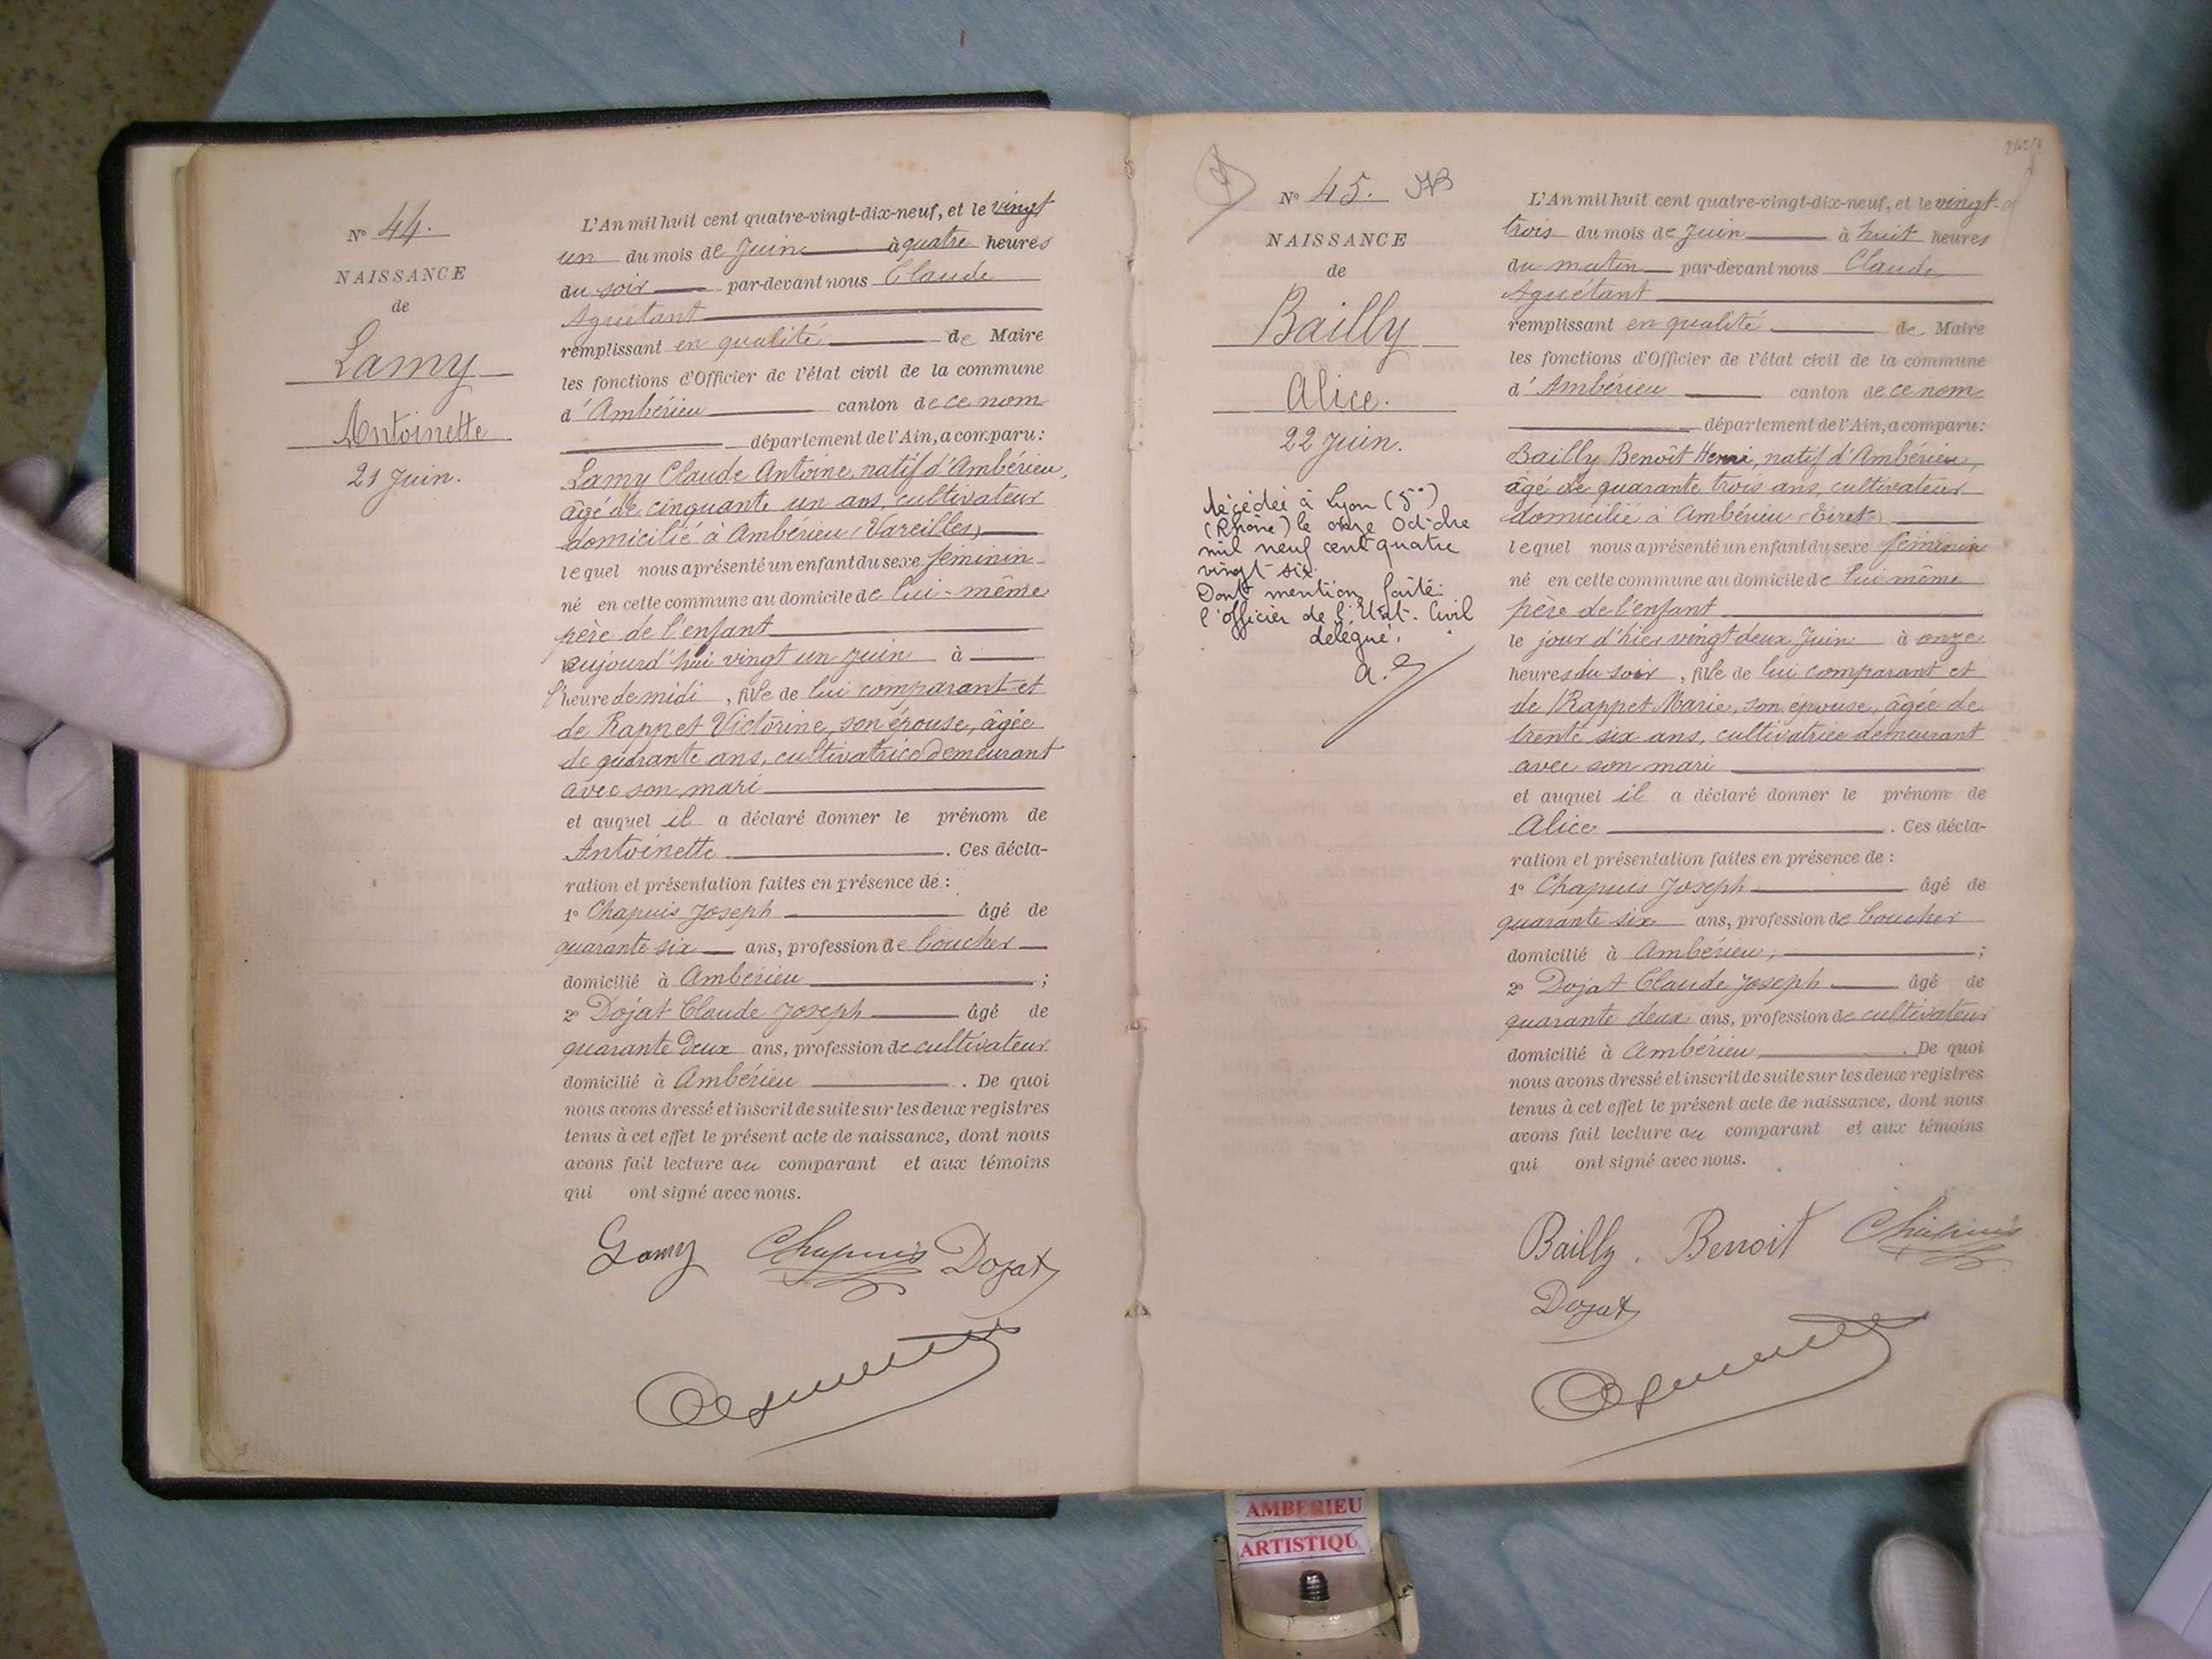 N° 44.
NAISSANCE
de
Lamy
Antoinette
21 Juin.
L'An mil huit cent quatre-vingt-dix-neuf, et le vingt
un du mois de Juin à quatre heures
du soir par-devant nous Claude
Aguétant
remplissant en qualité de Maire
les fonctions d'Officier de l'état civil de la commune
d'Ambérieu canton de ce nom
département de l'Ain, a comparu :
Lamy Claude Antoine, natif d'Ambérieu,
âgé de cinquante un ans, cultivateur
domicilié à Ambérieu (Vareilles)
lequel nous a présenté un enfant du sexe féminin
né en cette commune au domicile de lui-même
père de l'enfant
aujourd'hui vingt un Juin à
l'heure de midi, fille de lui comparant et
de Rappet Victorine, son épouse, âgée
de quarante ans, cultivatrice demeurant
avec son mari
et auquel il a déclaré donner le prénom de
Antoinette. Ces décla-
ration et présentation faites en présence de :
1° Chapuis Joseph âgé de
quarante six ans, profession de boucher
domicilié à Ambérieu ;
2° Dojat Claude Joseph âgé de
quarante deux ans, profession de cultivateur
domicilié à Ambérieu. De quoi
nous avons dressé et inscrit de suite sur les deux registres
tenus à cet effet le présent acte de naissance, dont nous
avons fait lecture au comparant et aux témoins
qui ont signé avec nous.
Lamy Chapuis Dojat
Aguétant
N° 45.
NAISSANCE
de
Bailly
Alice.
22 Juin.
décédée à Lyon (5e)
(Rhône) le onze Octobre
mil neuf cent quatre
vingt six.
Dont mention faite.
l'officier de l'Etat-Civil
délégué.
L'An mil huit cent quatre-vingt-dix-neuf, et le vingt-
trois du mois de Juin à huit heures
du matin par-devant nous Claude
Aguétant
remplissant en qualité de Maire
les fonctions d'Officier de l'état civil de la commune
d'Ambérieu canton de ce nom
département de l'Ain, a comparu :
Bailly Benoît Henri, natif d'Ambérieu,
âgé de quarante trois ans, cultivateur
domicilié à Ambérieu (Tiret)
lequel nous a présenté un enfant du sexe féminin
né en cette commune au domicile de lui même
père de l'enfant
le jour d'hier vingt deux Juin à onze
heures du soir, fille de lui comparant et
de Rappet Marie, son épouse, âgée de
trente six ans, cultivatrice demeurant
avec son mari
et auquel il a déclaré donner le prénom de
Alice. Ces décla-
ration et présentation faites en présence de :
1° Chapuis Joseph âgé de
quarante six ans, profession de boucher
domicilié à Ambérieu, ;
2° Dojat Claude Joseph âgé de
quarante deux ans, profession de cultivateur
domicilié à Ambérieu. De quoi
nous avons dressé et inscrit de suite sur les deux registres
tenus à cet effet le présent acte de naissance, dont nous
avons fait lecture au comparant et aux témoins
qui ont signé avec nous.
Bailly. Benoit Chapuis
Dojat
Aguétant
AMBERIEU
ARTISTIQU